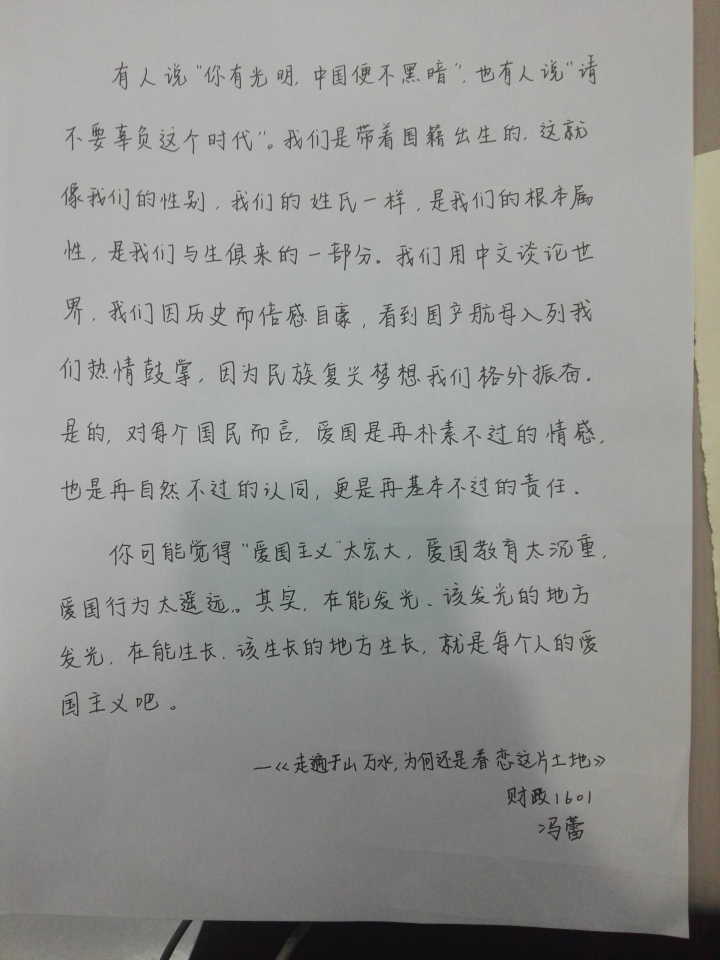 有人说“你有光明,中国便不黑暗”,也有人说“请
不要辜负这个时代”。我们是带着国籍出生的,这就
像我们的性别,我们的姓氏一样,是我们的根本属
性,是我们与生俱来的一部分。我们用中文谈论世
界,我们因历史而倍感自豪,看到国产航母入列我
们热情鼓掌,因为民族复兴梦想我们格外振奋.
是的,对每个国民而言,爱国是再朴素不过的情感,
也是再自然不过的认同,更是再基本不过的责任.
你可能觉得“爱国主义”太宏大,爱国教育太沉重,
爱国行为太遥远。其实,在能发光、该发光的地方
发光,在能生长、该生长的地方生长,就是每个人的爱
国主义吧。
—《走遍千山万水,为何还是眷恋这片土地》
财政1601
冯蕾